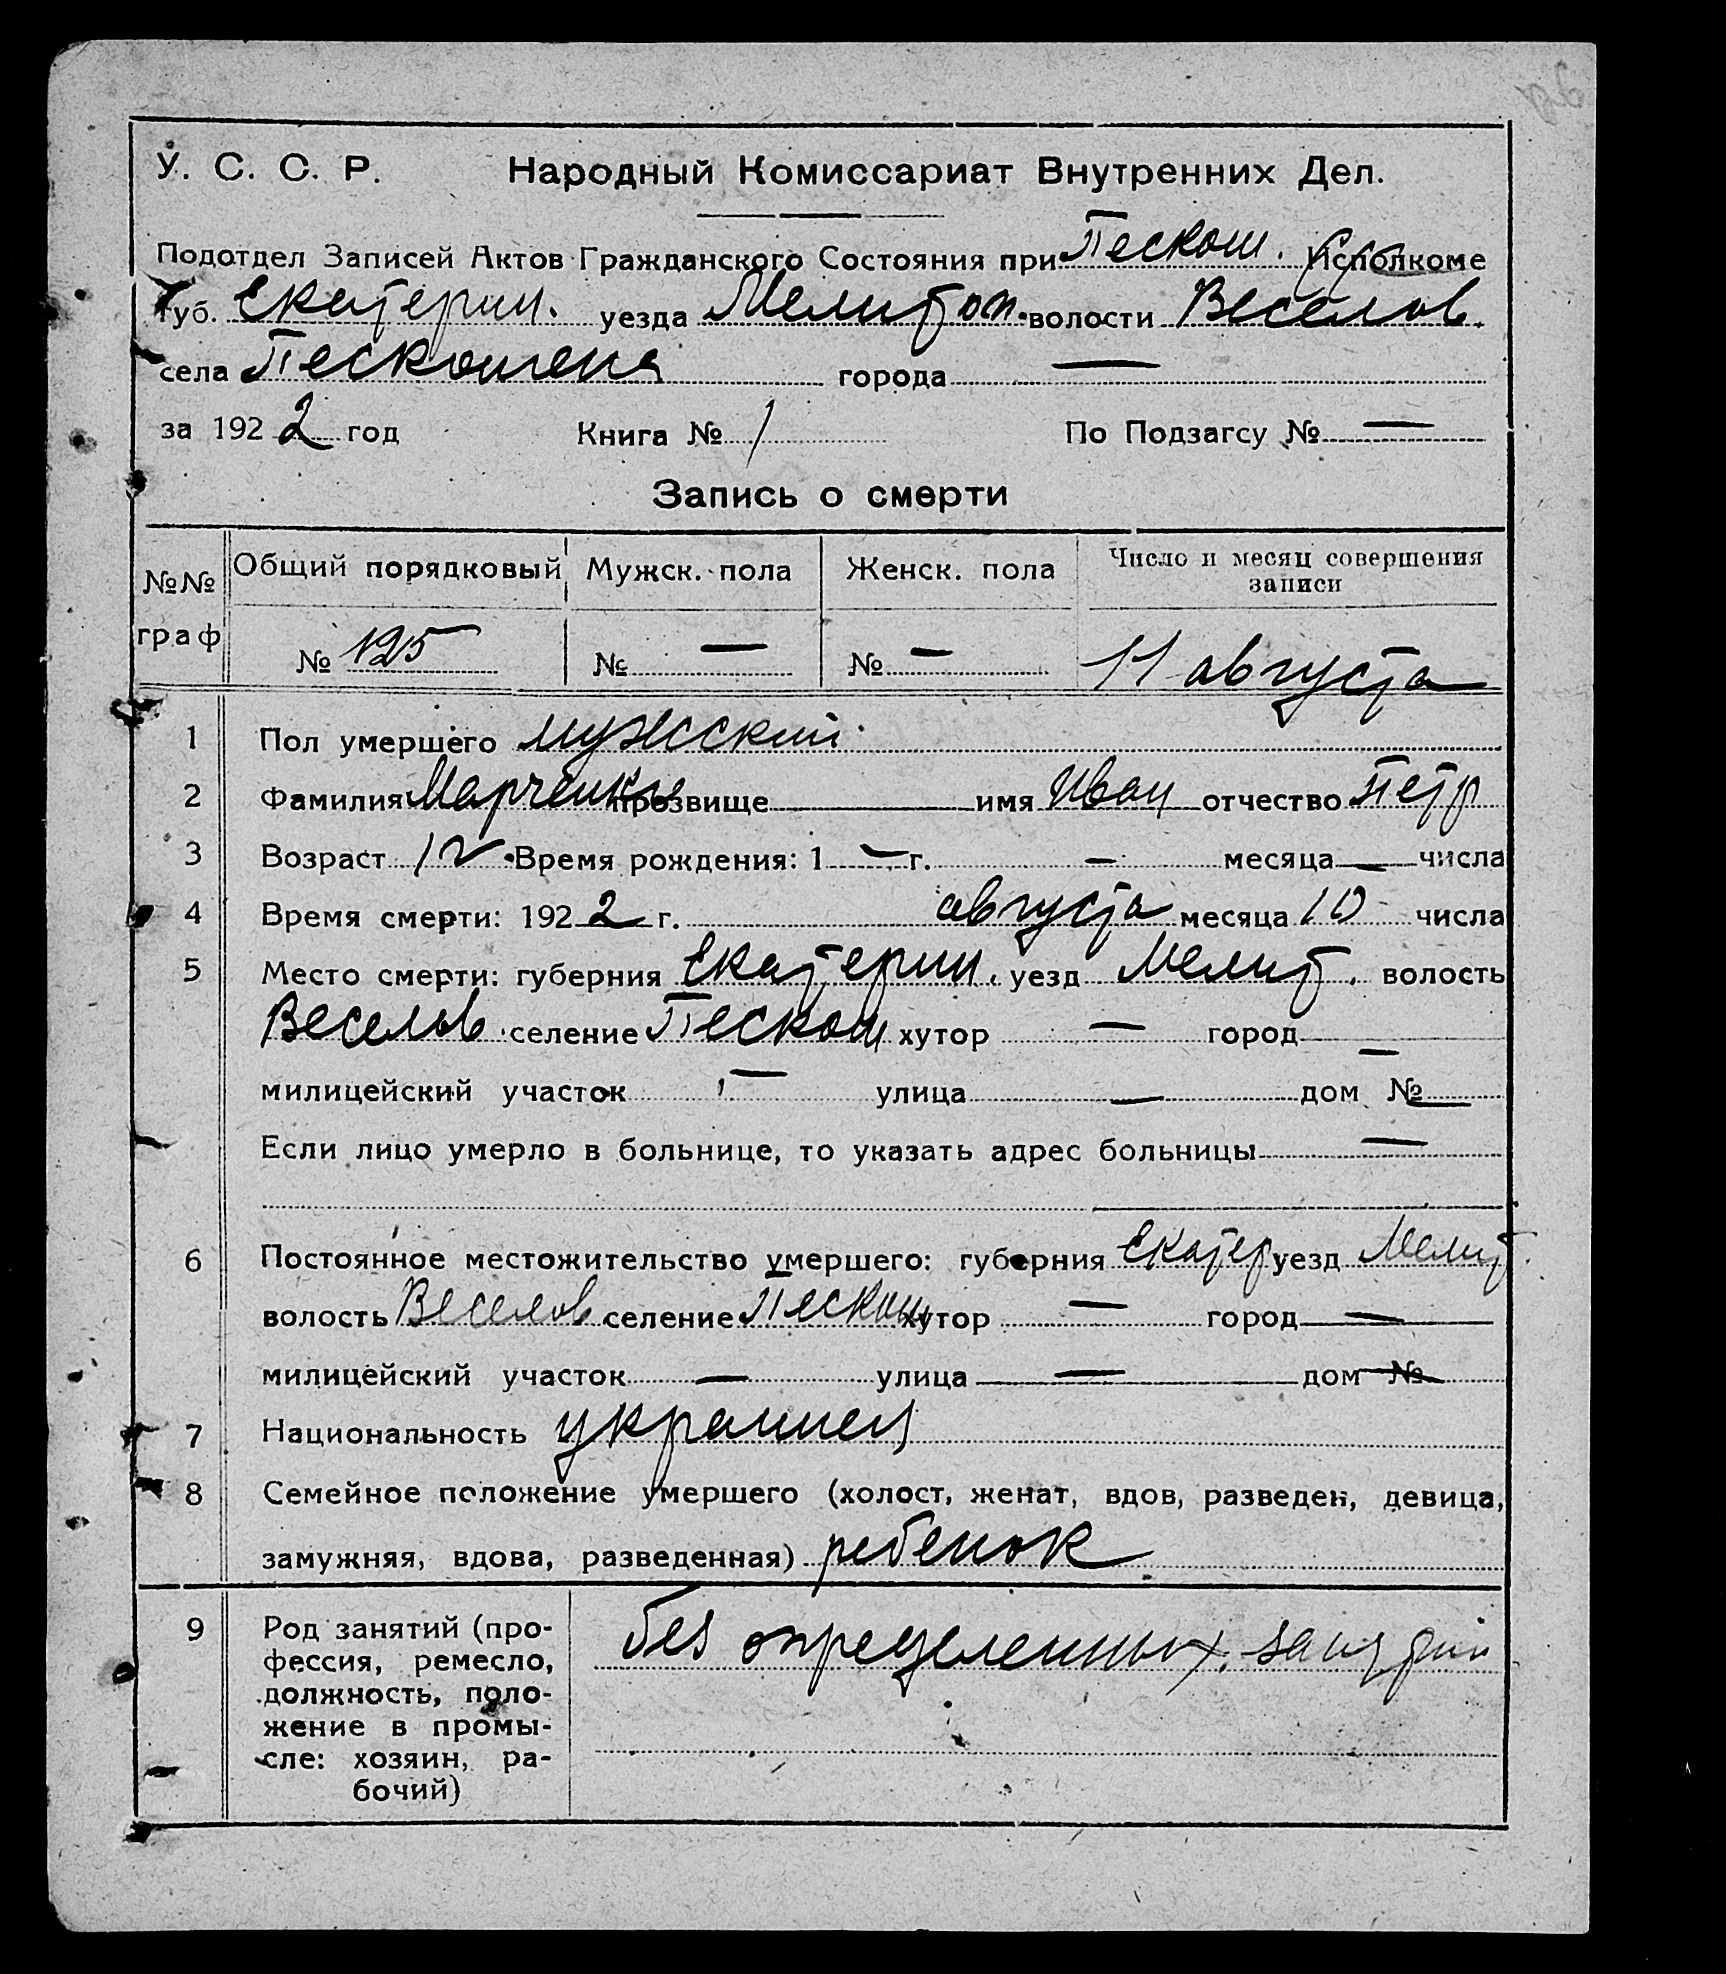 У. С. С. Р. Народный Комиссариат Внутренних Дел.
Подотдел Записей Актов Гражданского Состояния при Пескош. Исполкоме
Губ. Екатерин. уезда Мелитоп. волости Веселов.
села Пескошена города —
за 1922 год Книга № 1 По Подзагсу № —
Запись о смерти
№№ граф Общий порядковый Мужск. пола Женск. пола Число и месяц совершения записи
№ 125 № — № — 11 августа
1 Пол умершего мужской
2 Фамилия Марченко прозвище имя Иван отчество Петр
3 Возраст 12 Время рождения: 1 — г. — месяца — числа
4 Время смерти: 1922 г. августа месяца 10 числа
5 Место смерти: губерния Екатерин. уезд Мелит. волость
Веселов селение Пескош хутор — город —
милицейский участок — улица — дом № —
Если лицо умерло в больнице, то указать адрес больницы —
6 Постоянное местожительство умершего: губерния Екатер уезд Мелит.
волость Веселов селение Пескош хутор — город —
милицейский участок — улица — дом № —
7 Национальность украинец
8 Семейное положение умершего (холост, женат, вдов, разведен, девица,
замужняя, вдова, разведенная) ребенок
9 Род занятий (про-
фессия, ремесло,
должность, поло-
жение в промы-
сле: хозяин, ра-
бочий)
без определенных занятий